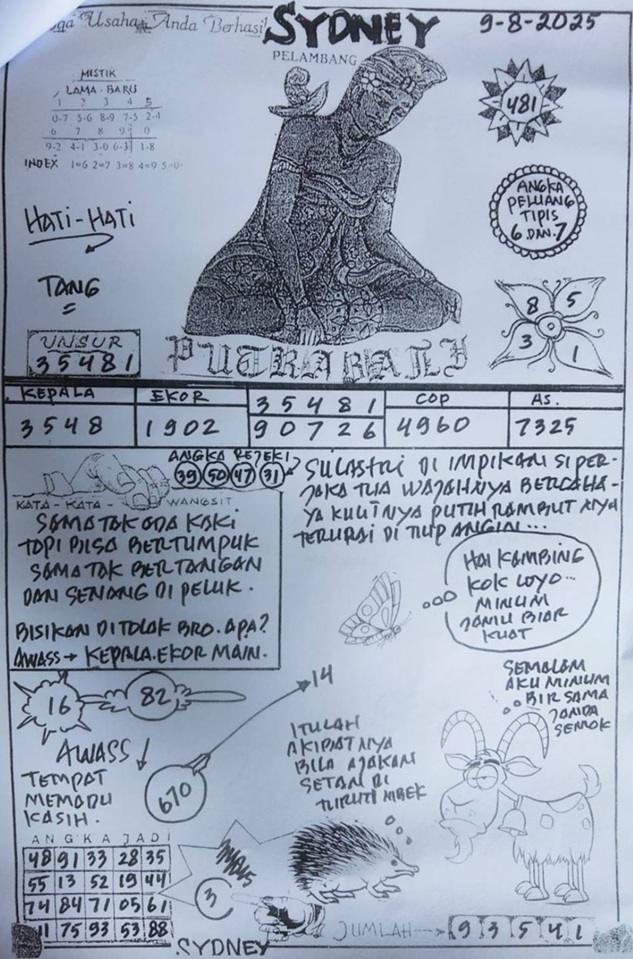 Usaha Anda Berhasil
SYDNEY
9-8-2025
PELAMBANG
MISTIK
LAMA - BARU
1 2 3 4 5
0-7 5-6 8-9 7-5 2-4
6 7 8 9 0
9-2 4-1 3-0 6-3 1-8
INDEX 1=6 2=7 3=8 4=9 5=0
481
ANGKA
PELUANG
TIPIS
6 DAN 7
HATI-HATI
TANG
8 5
3 1
UNSUR
35481
PUTRA BALI
KEPALA
EKOR
35481
COP
AS.
3548
1902
90726
4960
7325
ANGKA REJEKI
39 50 47 31
SULASTRI DI IMPIKAN SI PER-
JAKA TUA WAJAHNYA BERCAHA-
YA KULITNYA PUTIH RAMBUT NYA
TERURAI DI TIUP ANGIN...
KATA - KATA - WANGSIT
SAMA TAK ADA KAKI
TAPI BISA BERTUMPUK
SAMA TAK BERTANGAN
DAN SENANG DI PELUK.
BISIKAN DITOLAK BRO. APA?
AWASS → KEPALA.EKOR MAIN.
HAI KAMBING
KOK LOYO...
MINUM
JAMU BIAR
KUAT
SEMALAM
AKU MINUM
BIR SAMA
JANDA
SEMOK
16
82
14
670
AWASS
TEMPAT
MEMADU
KASIH.
ITULAH
AKIBATNYA
BILA AJAKAN
SETAN DI
TURUTI MBEK
ANGKA JADI
48 91 33 28 35
55 13 52 19 44
74 84 71 05 61
11 75 93 53 88
3
JUMLAH → 9 3 5 4 1
SYDNEY